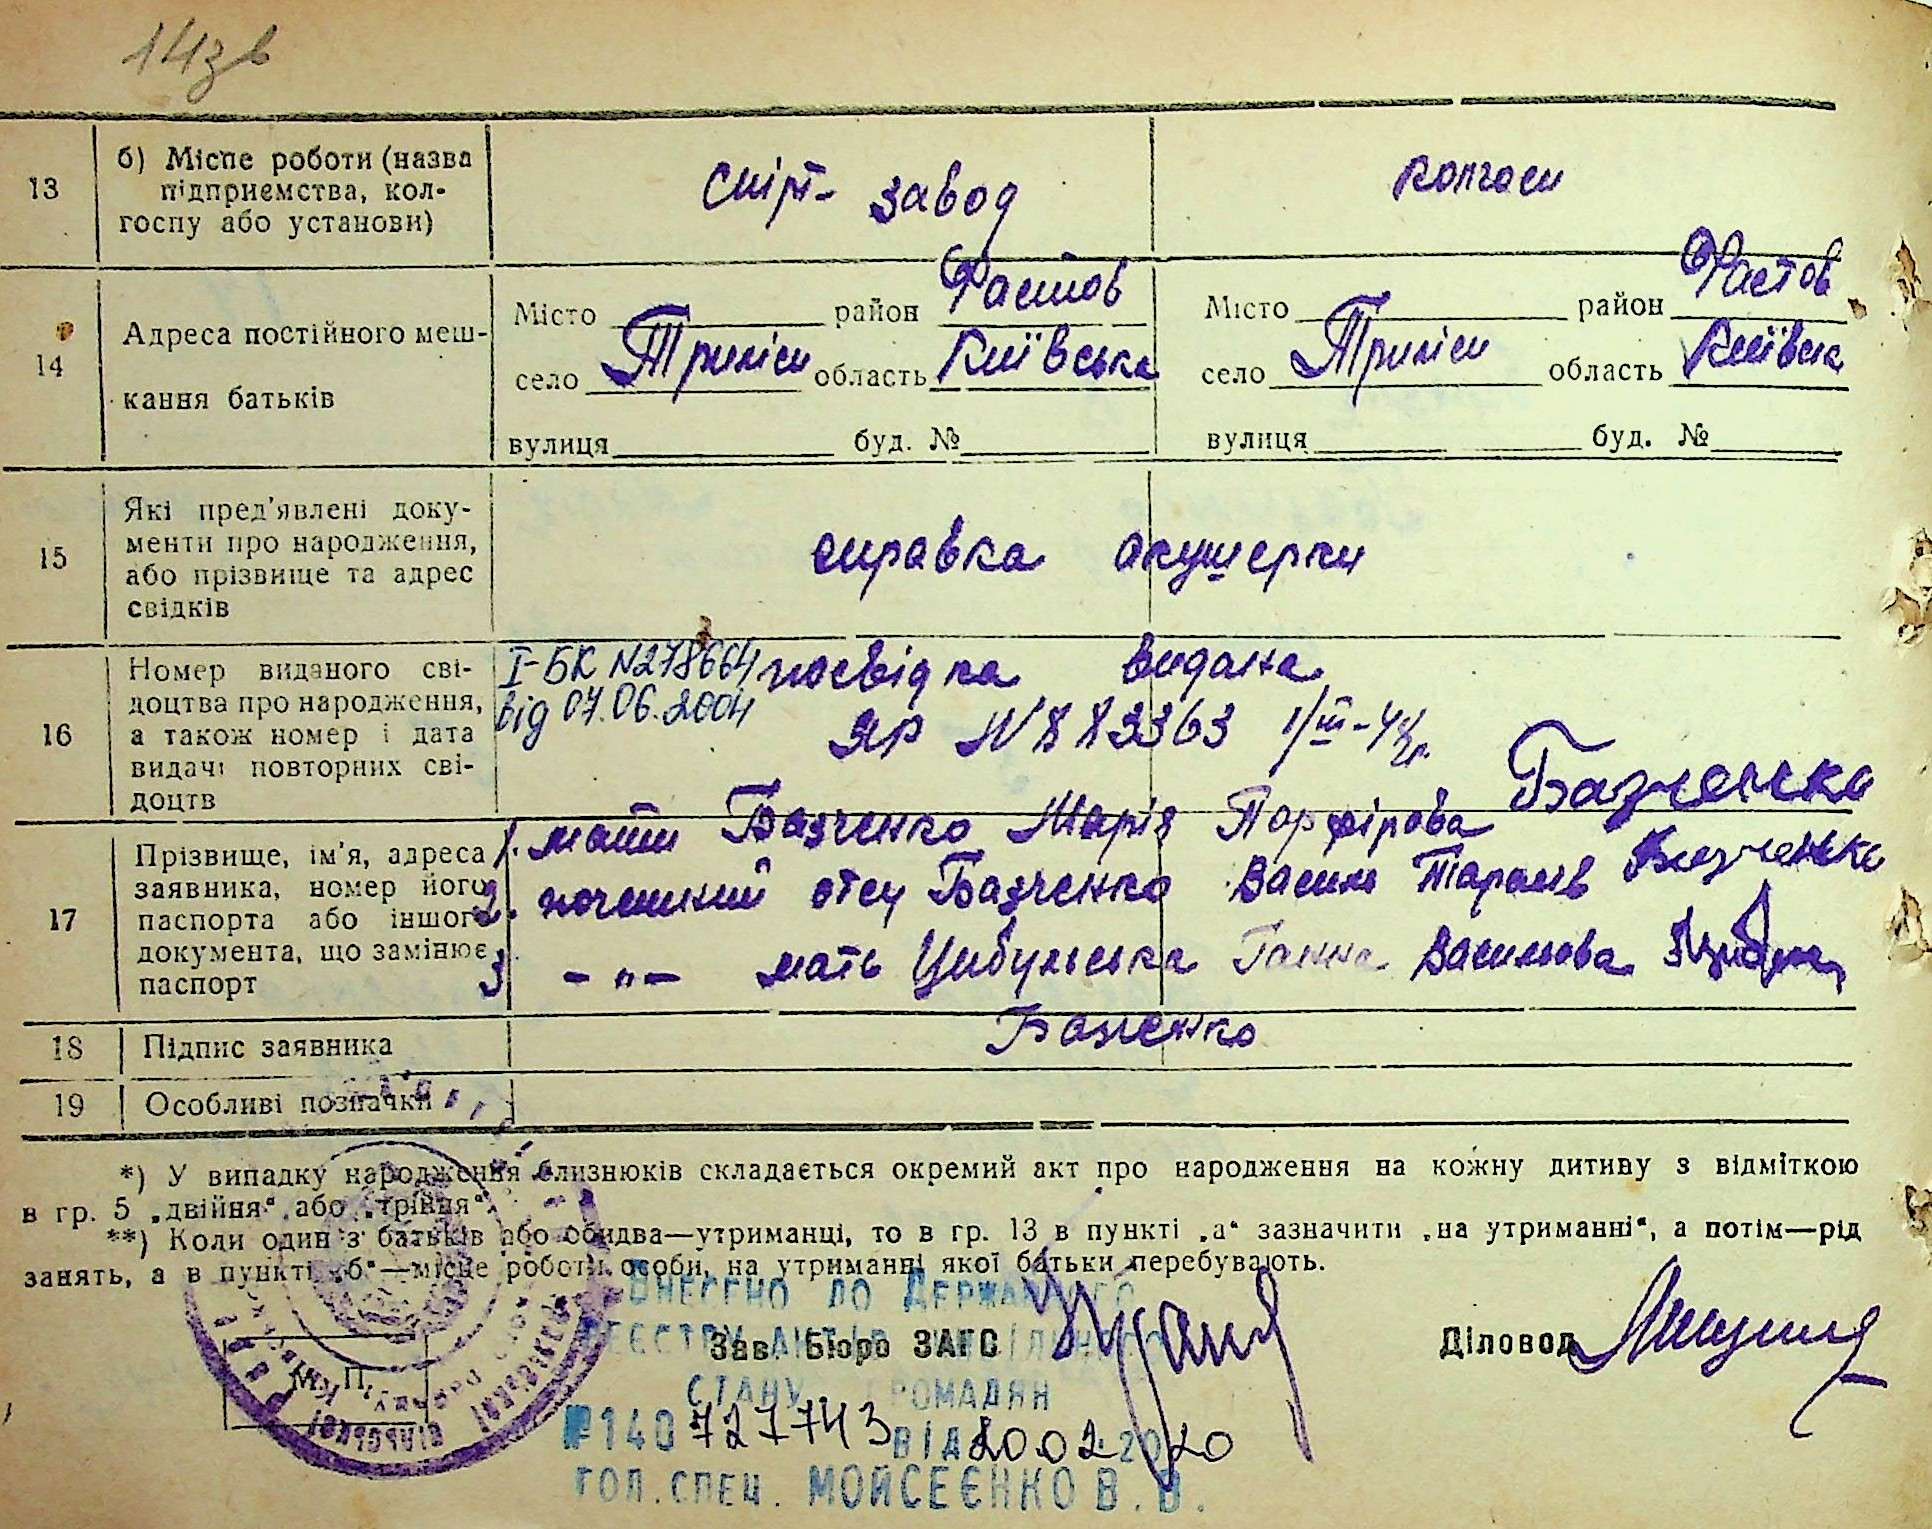 14зв
13
б) Місце роботи (назва
підприємства, кол-
госпу або установи)
спірт- завод
колгосп
14
Адреса постійного меш-
кання батьків
Місто район Фастов
село Триліси область Київська
вулиця буд. №
Місто район Фастов
село Триліси область Київськ
вулиця буд. №
15
Які пред'явлені доку-
менти про народження,
або прізвище та адрес
свідків
справка акушерки
16
Номер виданого сві-
доцтва про народження,
а також номер і дата
видачі повторних сві-
доцтв
I-БК N278664
від 07.06.2004
посвідка видана
ЯР N 883363 1/III-48р.
17
Прізвище, ім'я, адреса
заявника, номер його
паспорта або іншого
документа, що замінює
паспорт
1. мати Базченко Марія Порфірова Базченко
2. отец Базченко Василь Тарасів Базченко
3 – „ – мать Цибульська Ганна Васильова
18
Підпис заявника
Базченко
19
Особливі позначки
*) У випадку народження близнюків складається окремий акт про народження на кожну дитину з відміткою
в гр. 5 „двійня“ або „трійня“.
**) Коли один з батьків або обидва—утриманці, то в гр. 13 в пункті „а“ зазначити „на утриманні“, а потім—рід
занять, а в пункті „б“—місце роботи особи, на утриманні якої батьки перебувають.
Внесено до Державного
реєстру актів цивільного
стану громадян
№140727743 від 20.02.2020
гол.спец. МОЙСЕЄНКО В.В.
Зав. Бюро ЗАГС
Діловод
М. П.